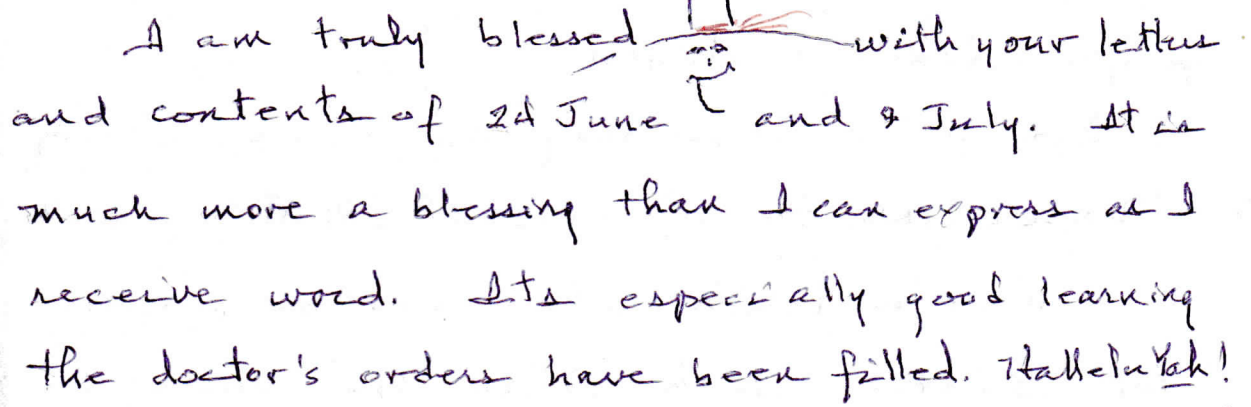 I am truly blessed with your letters
and contents of 24 June and 8 July. It is
much more a blessing than I can express as I
receive word. Its especially good learning
the doctor's orders have been filled. HalleluYah!